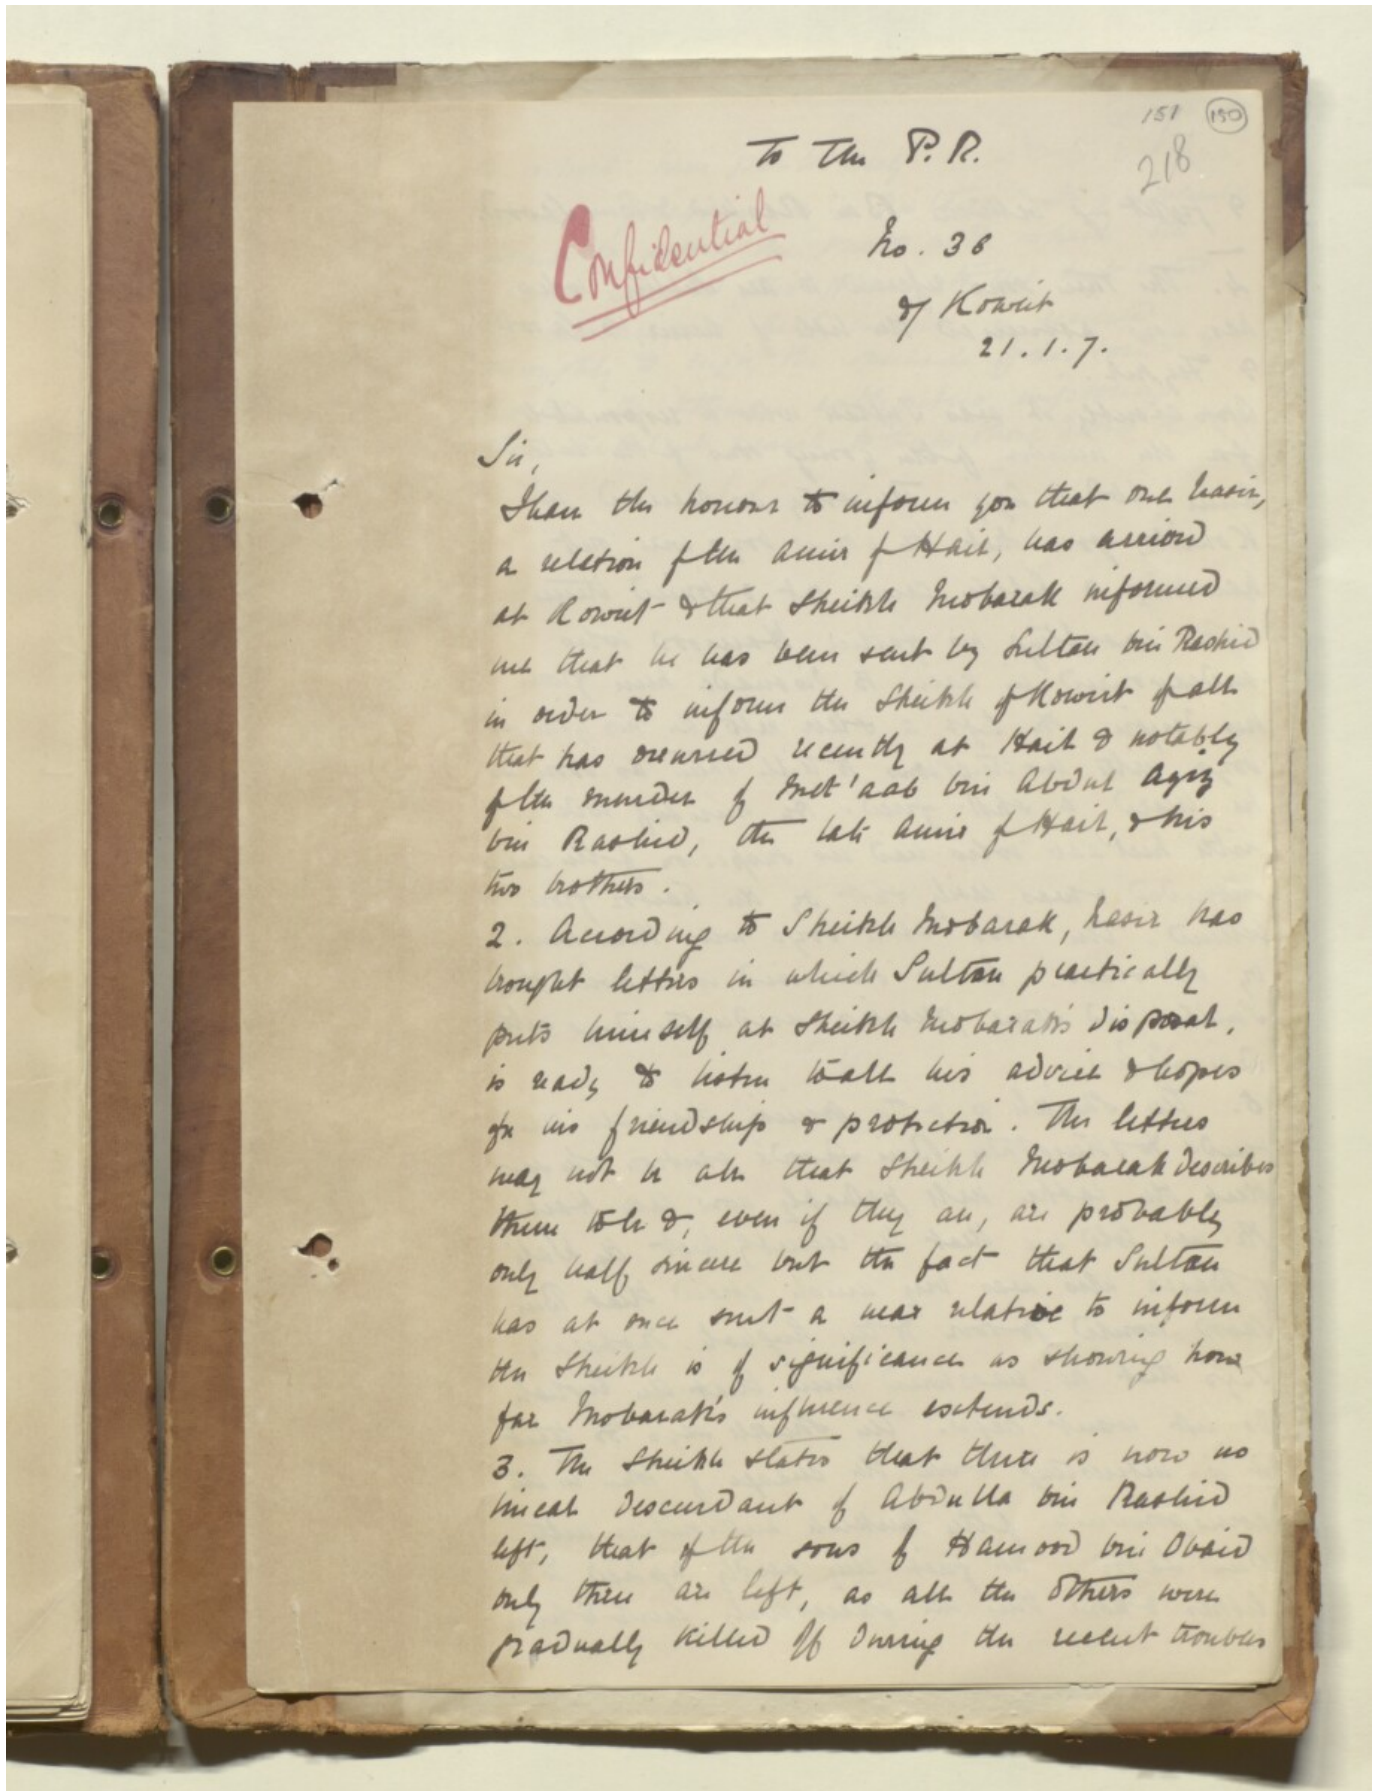 151 150
218
To the P.R.
Confidential
No. 36
of Koweit
21.1.7.
Sir,
I have the honour to inform you that one Nasir,
a relation of the Amir of Hail, has arrived
at Koweit & that Sheikh Mobarak informed
me that he has been sent by Sultan bin Rashid
in order to inform the Sheikh of Koweit of all
that has occurred recently at Hail & notably
of the murder of Met'aab bin Abdul Aziz
bin Rashid, the late Amir of Hail, & his
two brothers.
2. According to Sheikh Mobarak, Nasir has
brought letters in which Sultan practically
puts himself at Sheikh Mobarak's disposal,
is ready to listen to all his advice & hopes
for his friendship & protection. The letters
may not be all that Sheikh Mobarak describes
them to be &, even if they are, are probably
only half sincere but the fact that Sultan
has at once sent a near relative to inform
the Sheikh is of significance as showing how
far Mobarak's influence extends.
3. The Sheikh states that there is now no
lineal descendant of Abdulla bin Rashid
left, that of the sons of Hamood bin Obaid
only three are left, as all the others were
gradually killed off during the recent troubles